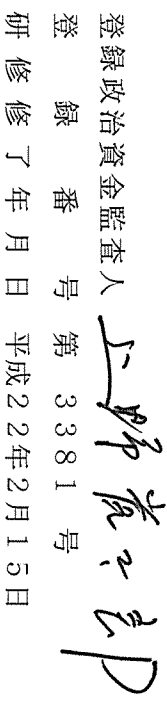 登録政治資金監査人
登録番号 第3381号
研修修了年月日 平成22年2月15日